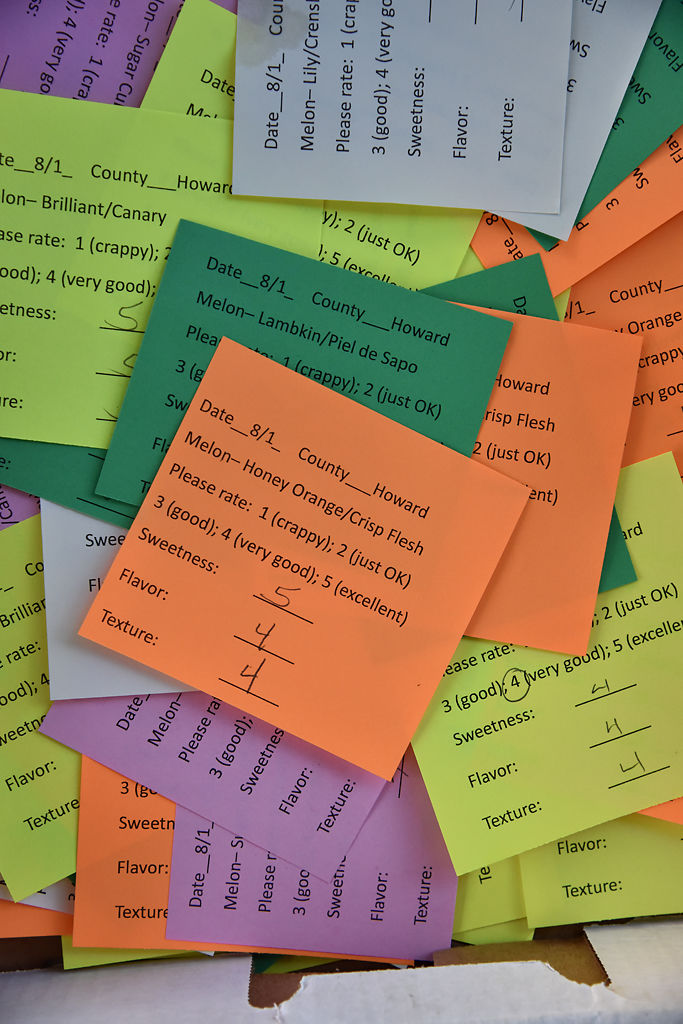 Melon– Sugar Cu
e rate: 1 (cra
), 4 (very go
Date
Date__8/1_ Coun
Melon– Lily/Crensh
Please rate: 1 (crap
3 (good); 4 (very go
Sweetness:
Flavor:
Texture:
te__8/1_ County___Howard
lon– Brilliant/Canary
ase rate: 1 (crappy); 2
ood); 4 (very good);
etness: 5
or:
ure:
y); 2 (just OK)
); 5 (excellent)
Date__8/1_ County___Howard
Melon– Lambkin/Piel de Sapo
Please rate: 1 (crappy); 2 (just OK)
3 (g
Sw
Fla
Date__8/1_ County___Howard
Melon– Honey Orange/Crisp Flesh
Please rate: 1 (crappy); 2 (just OK)
3 (good); 4 (very good); 5 (excellent)
Sweetness: 5
Flavor: 4
Texture: 4
Howard
risp Flesh
2 (just OK)
ent)
/1_ County
y Orange
crappy
ery goo
Swee
Fl
ard
2 (just OK)
ease rate:
3 (good); 4 (very good); 5 (excelle
Sweetness: 4
Flavor: 4
Texture: 4
Co
Brillian
e rate:
ood); 4
weetn
Flavor:
Texture
Date
Melon–
Please ra
3 (good);
Sweetness
Flavor:
Texture:
3 (go
Sweetn
Flavor:
Texture
Date__8/1_
Melon– Su
Please
3 (goo
Sweetne
Flavor:
Texture:
Te
Flavor:
Texture: